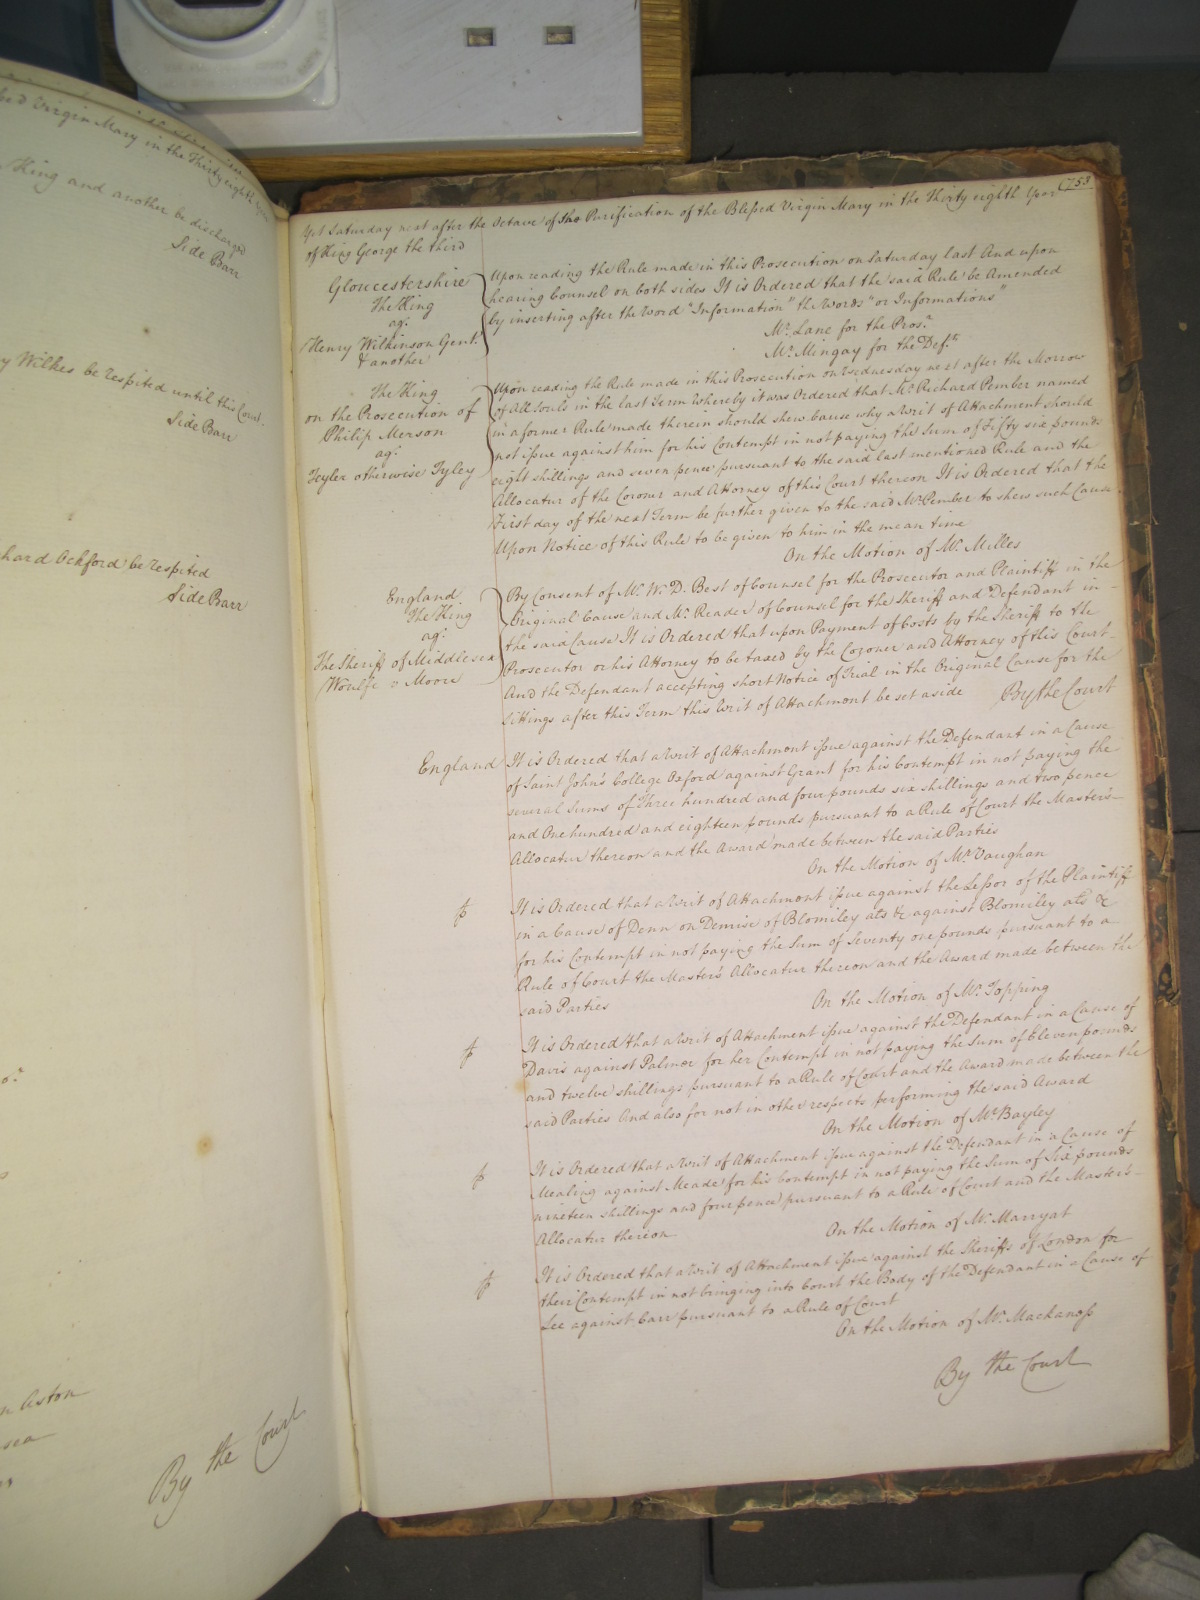 Virgin Mary in the Thirty eighth Year
King and another be discharged
Side Barr
Wilkes be respited until this Court.
Side Barr
chard Ockford be respited
Side Barr
n Aston
By the Court
753
Yet Saturday next after the Octave of the Purification of the Blessed Virgin Mary in the Thirty eighth Year
of King George the third
Gloucestershire
The King
agt.
Henry Wilkinson Gent.
& another
Upon reading the Rule made in this Prosecution on Saturday last And upon
hearing Counsel on both sides It is Ordered that the said Rule be Amended
by inserting after the Word "Information" the Words "or Informations"
Mr. Lane for the Prosr.
Mr. Mingay for the Defts.
The King
on the Prosecution of
Philip Merson
agt.
Teyler otherwise Tyley
Upon reading the Rule made in this Prosecution on Wednesday next after the Morrow
of All Souls in the last Term Whereby it was Ordered that Mr. Richard Pember named
in a former Rule made therein should shew Cause why a Writ of Attachment should
not issue against him for his Contempt in not paying the Sum of Fifty six pounds
eight shillings and seven pence pursuant to the said last mentioned Rule and the
Allocatur of the Coroner and Attorney of this Court thereon It is Ordered that the
First day of the next Term be further given to the said Mr. Pember to shew such Cause
Upon Notice of this Rule to be given to him in the mean time
On the Motion of Mr. Milles
England
The King
agt.
The Sheriff of Middlesex
Woulfe v Moore
By Consent of Mr. W. D. Best of Counsel for the Prosecutor and Plaintiff in the
Original Cause and Mr. Reader of Counsel for the Sheriff and Defendant in
the said Cause It is Ordered that upon Payment of Costs by the Sheriff to the
Prosecutor or his Attorney to be taxed by the Coroner and Attorney of this Court
And the Defendant accepting short Notice of Trial in the Original Cause for the
Sittings after this Term this Writ of Attachment be set aside
By the Court
England It is Ordered that a Writ of Attachment issue against the Defendant in a Cause
of Saint John's College Oxford against Grant for his Contempt in not paying the
several Sums of Three hundred and four pounds six shillings and two pence
and One hundred and eighteen pounds pursuant to a Rule of Court the Master's
Allocatur thereon and the Award made between the said Parties
On the Motion of Mr. Vaughan
It is Ordered that a Writ of Attachment issue against the Lessor of the Plaintiff
in a Cause of Denn on Demise of Blomiley als &c against Blomiley als &c
for his Contempt in not paying the Sum of Seventy one pounds pursuant to a
Rule of Court the Master's Allocatur thereon and the Award made between the
said Parties
On the Motion of Mr. Topping
It is Ordered that a Writ of Attachment issue against the Defendant in a Cause of
Davis against Palmer for her Contempt in not paying the Sum of Eleven pounds
and twelve shillings pursuant to a Rule of Court and the Award made between the
said Parties And also for not in other respects performing the said Award
On the Motion of Mr. Bayley
It is Ordered that a Writ of Attachment issue against the Defendant in a Cause of
Mealing against Meade for his Contempt in not paying the Sum of Six pounds
nineteen shillings and four pence pursuant to a Rule of Court and the Master's
Allocatur thereon
On the Motion of Mr. Marryat
It is Ordered that a Writ of Attachment issue against the Sheriffs of London for
their Contempt in not bringing into Court the Body of the Defendant in a Cause of
Lee against Carr pursuant to a Rule of Court
On the Motion of Mr. Mackanoss
By the Court